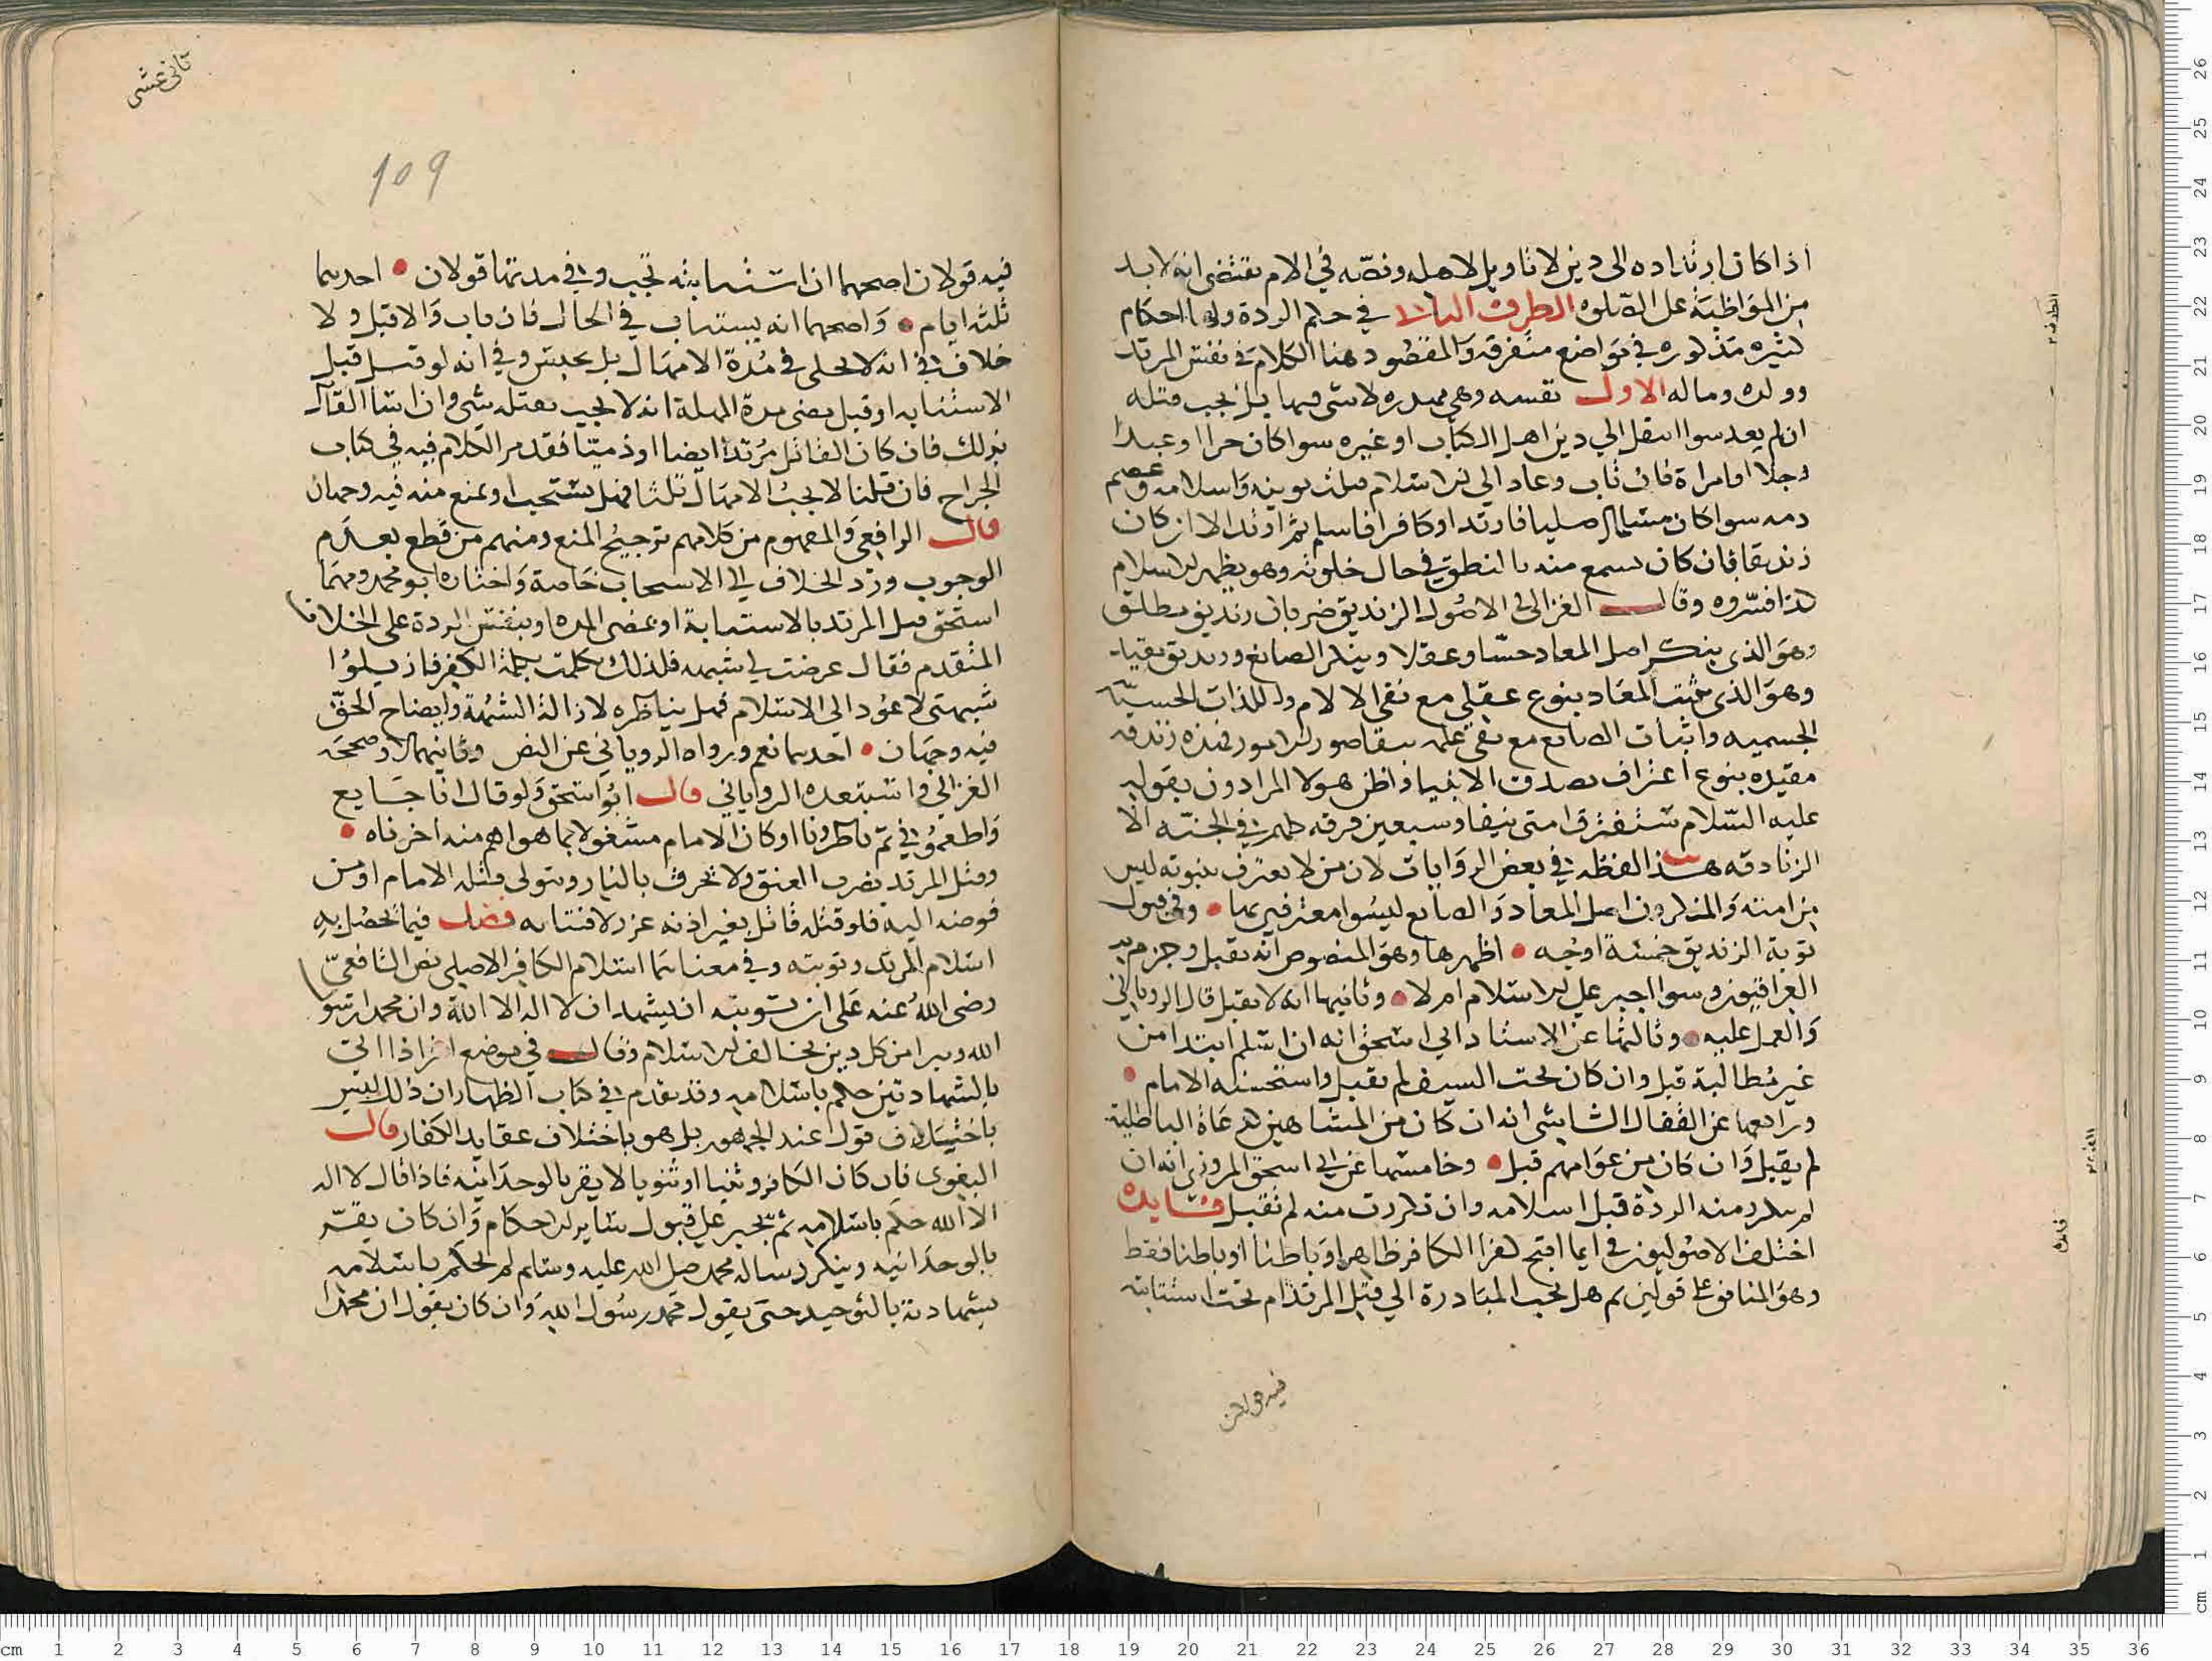 اذا كان ارتداده الى دين لا تاويل لاهله ونصه في الام يقتضي انه لا بد
من المواظبة على الصلوة الطرف الثالث في حكم الردة ولها احكام
كثيره مذكوره في مواضع متفرقه والمقصود هنا الكلام في نفس المرتد
وولده وماله الاول نفسه وهي مهدره لا شي فيها بل يجب قتله
ان لم يعد سوا انتقل الي دين اهل الكتاب او غيره سوا كان حرا او عبدا
رجلا او امراة فان تاب وعاد الي الاسلام قبلت توبته واسلامه وعصم
دمه سوا كان مسلما اصليا فارتد او كافرا فاسلم ثم ارتد الا ان كان
زنديقا فان كان يسمع منه ما النطق في حال خلوته وهو يظهر الاسلام
كذا فسروه وقال الغزالي في الاصول الزنديق ضربان زنديق مطلق
وهو الذي ينكر اصل المعاد حسا وعقلا وينكر الصانع وزنديق مقيد
وهو الذي يثبت المعاد بنوع عقلي مع نفي الالام واللذات الحسية
الجسميه واثبات الصانع مع نفي علمه بتفاصيل الامور فهذه زندقه
مقيده بنوع اعتراف بصدق الانبيا واظن هولا المرادون بقوله
عليه السلام ستفترق امتي نيفا وسبعين فرقه كلهم في الجنه الا
الزنادقه هذا لفظه في بعض الروايات لان من لا يعترف بنبوته ليس
من امته والمنكرون اصل المعاد والصانع ليسوا معترفين بها وفي قبول
توبة الزنديق خمسة اوجه اظهرها وهو المنصوص انه يقبل وجزم به
العراقيون سوا اجبر على الاسلام ام لا وثانيها انه لا يقبل قال الروياني
والعمل عليه وثالثها عن الاستاد ابي اسحق انه ان اسلم ابتدا من
غير مطالبة قبل وان كان تحت السيف لم يقبل واستحسنه الامام
ورابعها عن القفال الشاشي انه ان كان من المتناهين كدعاة الباطنية
لم يقبل وان كان من عوامهم قبل وخامسها عن ابي اسحق المروزي انه ان
لم يتكرر منه الردة قبل اسلامه وان تكررت منه لم تقبل فايده
اختلف الاصوليون في ايما اقبح كفرا الكافر ظاهرا وباطنا او باطنا فقط
وهو المنافق على قولين ثم هل يجب المبادرة الي قتل المرتد ام تحت استتابته
فيه قولان
فائدة
ثاني عشر
109
فيه قولان اصحهما ان استتابته تجب وفي مدتها قولان احدهما
ثلثه ايام واصحهما انه يستتاب في الحال فان تاب والا قتل ولا
خلاف في انه لا يخلى في مدة الامهال بل يحبس وفي انه لو قتل قبل
الاستتابه او قبل مضي مدة المهلة انه لا يجب بقتله شي وان اسا القاتل
بذلك فان كان القاتل مرتدا ايضا او ذميا فقد مر الكلام فيه في كتاب
الجراح فان قلنا لا يجب الامهال ثلثا فهل يستحب او يمنع منه فيه وجهان
قال الرافعي والمفهوم من كلامهم ترجيح المنع ومنهم من قطع بعدم
الوجوب ورد الخلاف الي الاستحباب خاصة واختاره ابو محمد ومهما
استحق قتل المرتد بالاستتابة او بمضي المدة او بنفس الردة على الخلاف
المتقدم فقال عرضت لي شبهه فلذلك تكلمت بكلمة الكفر فازيلوا
شبهتي لاعود الى الاسلام فهل يناظره لازالة الشبهة وايضاح الحق
فيه وجهان احدهما نعم ورواه الروياني عن النص وثانيهما لا وصححه
الغزالي واستبعده الروياني قال ابو اسحق ولو قال انا جايع
واطعموني ثم ناظرونا او كان الامام مشغولا بما هو اهم منه اخرناه
وقتل المرتد بضرب العنق ولا يحرق بالنار ويتولى قتله الامام او من
فوضه اليه فلو قتله قاتل بغير اذنه عزر لافتياته فصل فيما يحصل به
اسلام المرتد وتوبته وفي معناهما اسلام الكافر الاصلي نص الشافعي
رضي الله عنه على ان توبته ان يشهد ان لا اله الا الله وان محمدا رسو
الله ويبرا من كل دين يخالف الاسلام وقال في موضع اخر اذا اتى
بالشهادتين حكم باسلامه وقد تقدم في كتاب الظهار ان ذلك ليس
باختلاف قول عند الجمهور بل هو باختلاف عقايد الكفار قال
البغوى فان كان الكافر وثنيا او ثنويا لا يقر بالوحدانيه فاذا قال لا اله
الا الله حكم باسلامه ثم يجبر على قبول ساير الاحكام وان كان يقر
بالوحدانيه وينكر رسالة محمد صلى الله عليه وسلم لم يحكم باسلامه
بشهادته بالتوحيد حتى يقول محمد رسول الله وان كان يقول ان محمدا